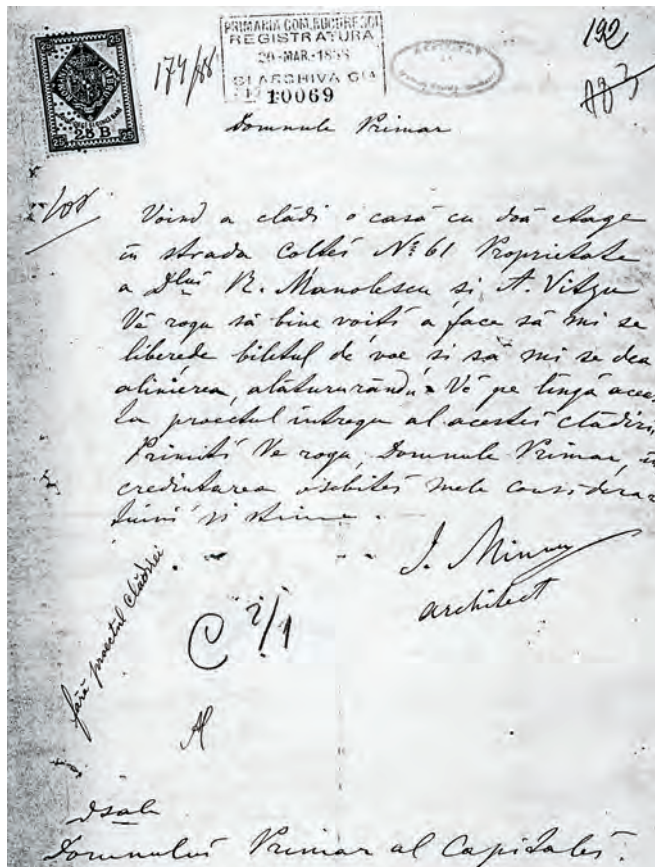 192
174/88
PRIMARIA COM. BUCURESCI
REGISTRATURA
20-MAR-1888
SI ARCHIVA
10069
25 25
25 B
25 25
Domnule Primar
Voind a clădi o casă cu doă etage
în strada Colței No 61 Proprietate
a Dlui R. Manolescu si A. Vitzu
Vĕ rogu să bine voiti a face să mi se
liberede biletul de voe si să mi se dea
alinierea, alătururându-Vĕ pe lîngă acea
la proectul intregu al acestei clădiri,
Primiti Ve rogu, Domnule Primar, în
credintarea osebitei mele considera
tiuni si stime.
I. Mincu
architect
fără proectul clădirei
C 2/1
Dsale
Domnului Primar al Capitalei